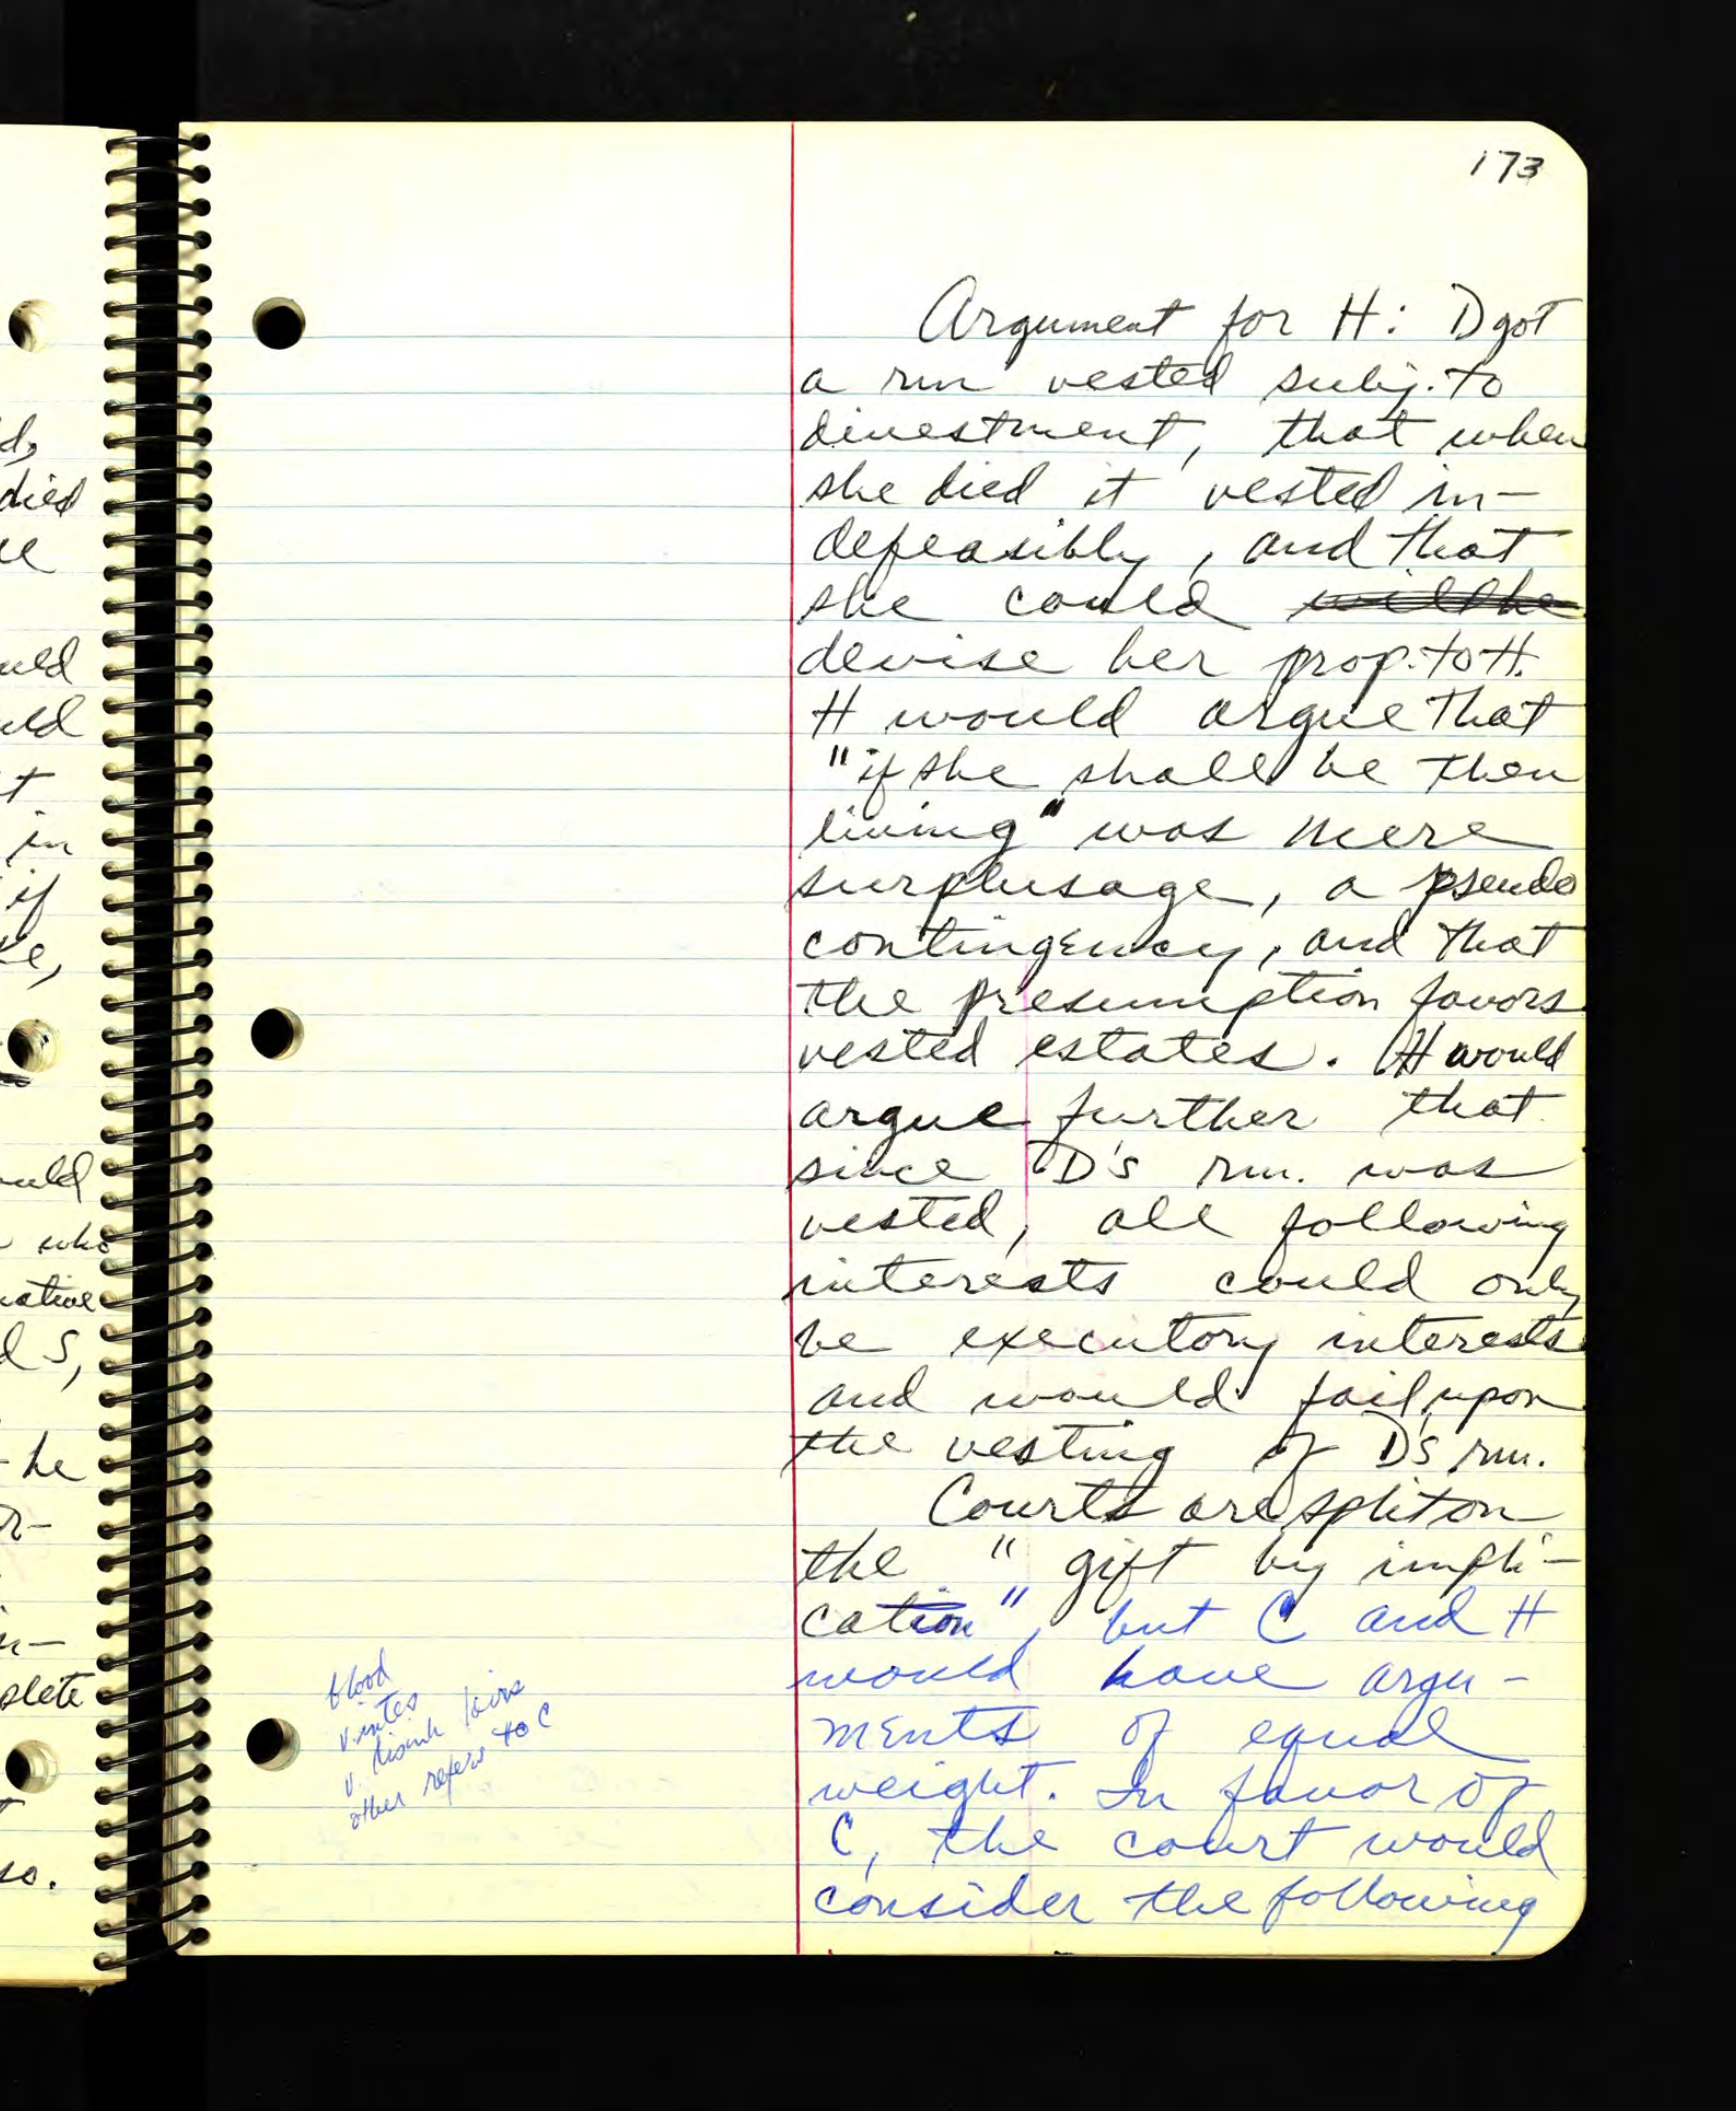 173
Argument for H: D got
a rm vested subj. to
divestment, that when
she died it vested in-
defeasibly, and that
she could
devise her prop. to H.
H would argue that
"if she shall be then
living" was mere
surplusage, a pseudo
contingency, and that
the presumption favors
vested estates. H would
argue further that
since D's rm. was
vested, all following
interests could only
be executory interests
and would fail upon
the vesting of D's rm.
Courts are split on
the "gift by impli-
cation", but C and H
would have argu-
ments of equal
weight. In favor of
C, the court would
consider the following
blood
v. intes
v. disinh heirs
other refers to C
d,
died
uld
uld
t
in
if
e,
uld
who
native
d S,
he
r-
n-
plete
so.